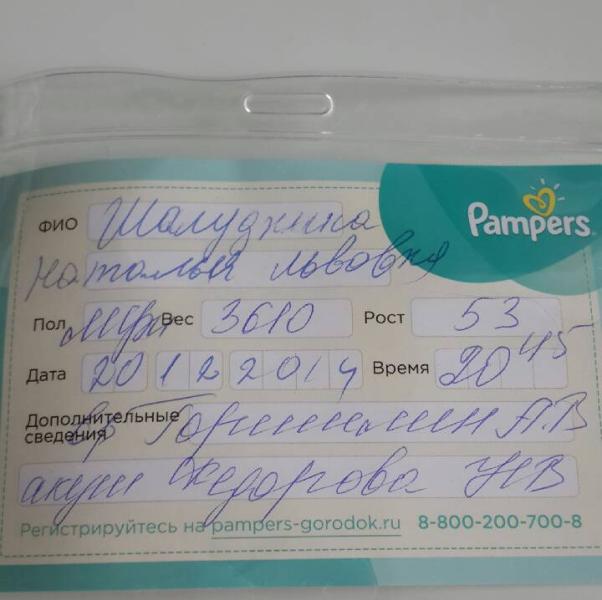 Pampers
ФИО Шалудкина
Наталья Львовна
Пол Муж Вес 3610 Рост 53
Дата 20 12 2014 Время 20 45
Дополнительные сведения вр А.В
акуш Федорова Н В
Регистрируйтесь на pampers-gorodok.ru 8-800-200-700-8